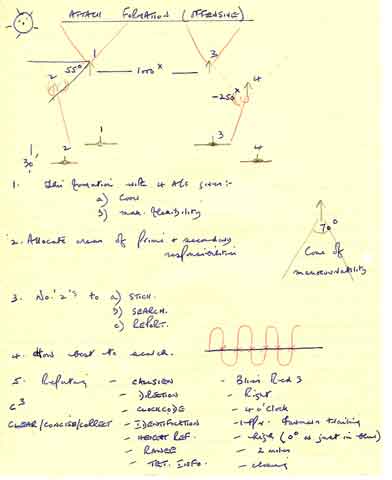 ATTACK FORMATION (OFFENSIVE)
1
3
2
55°
1000x
4
-250x
2
1
3
4
30'
1. This formation with 4 A/Cs gives:-
a) Cover
b) max. flexibility
2. Allocate areas of prime + secondary
responsibilities
70°
Cone of
manoeuvrability
3. No. '2's' to a) STICK.
b) SEARCH.
c) REPORT.
4. How best to search.
5. Reporting - CALLSIGN - Red 3
- DIRECTION - Right
C³ - CLOCKCODE - 4 o'clock
CLEAR/CONCISE/CORRECT - IDENTIFICATION - trailing
- HEIGHT REF. - high (0° is just in
- RANGE - 2 miles
- TGT. INFO. - closing